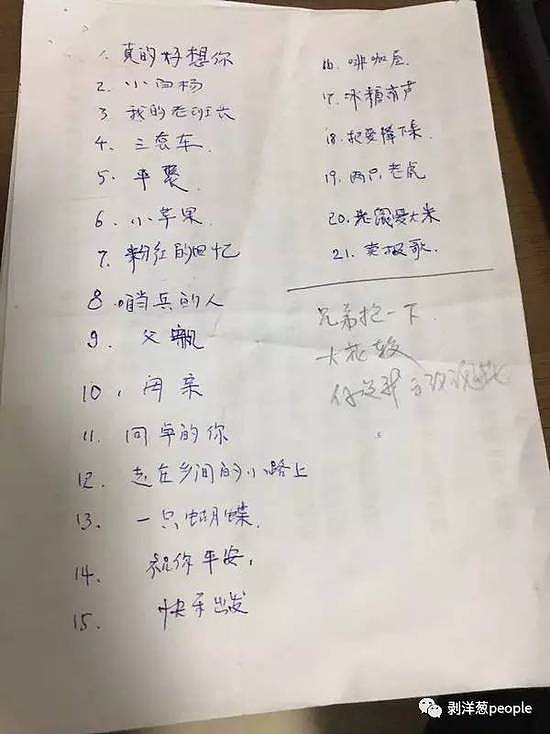 1. 真的好想你
2. 小白杨
3 我的老班长
4、三套车
5、平聚
6、小苹果
7、粉红的回忆
8 哨兵的人
9、父親
10、闭亲
11. 同卓的你
12、走在乡间的小路上
13、一只蝴蝶.
14、祝你平安,
15、快乐出发
16. 啡咖屋.
17. 冰糖
18.
19、两只老虎
20、老鼠爱大米
21、卖报歌.
兄弟抱一下
大花轿
剥洋葱people